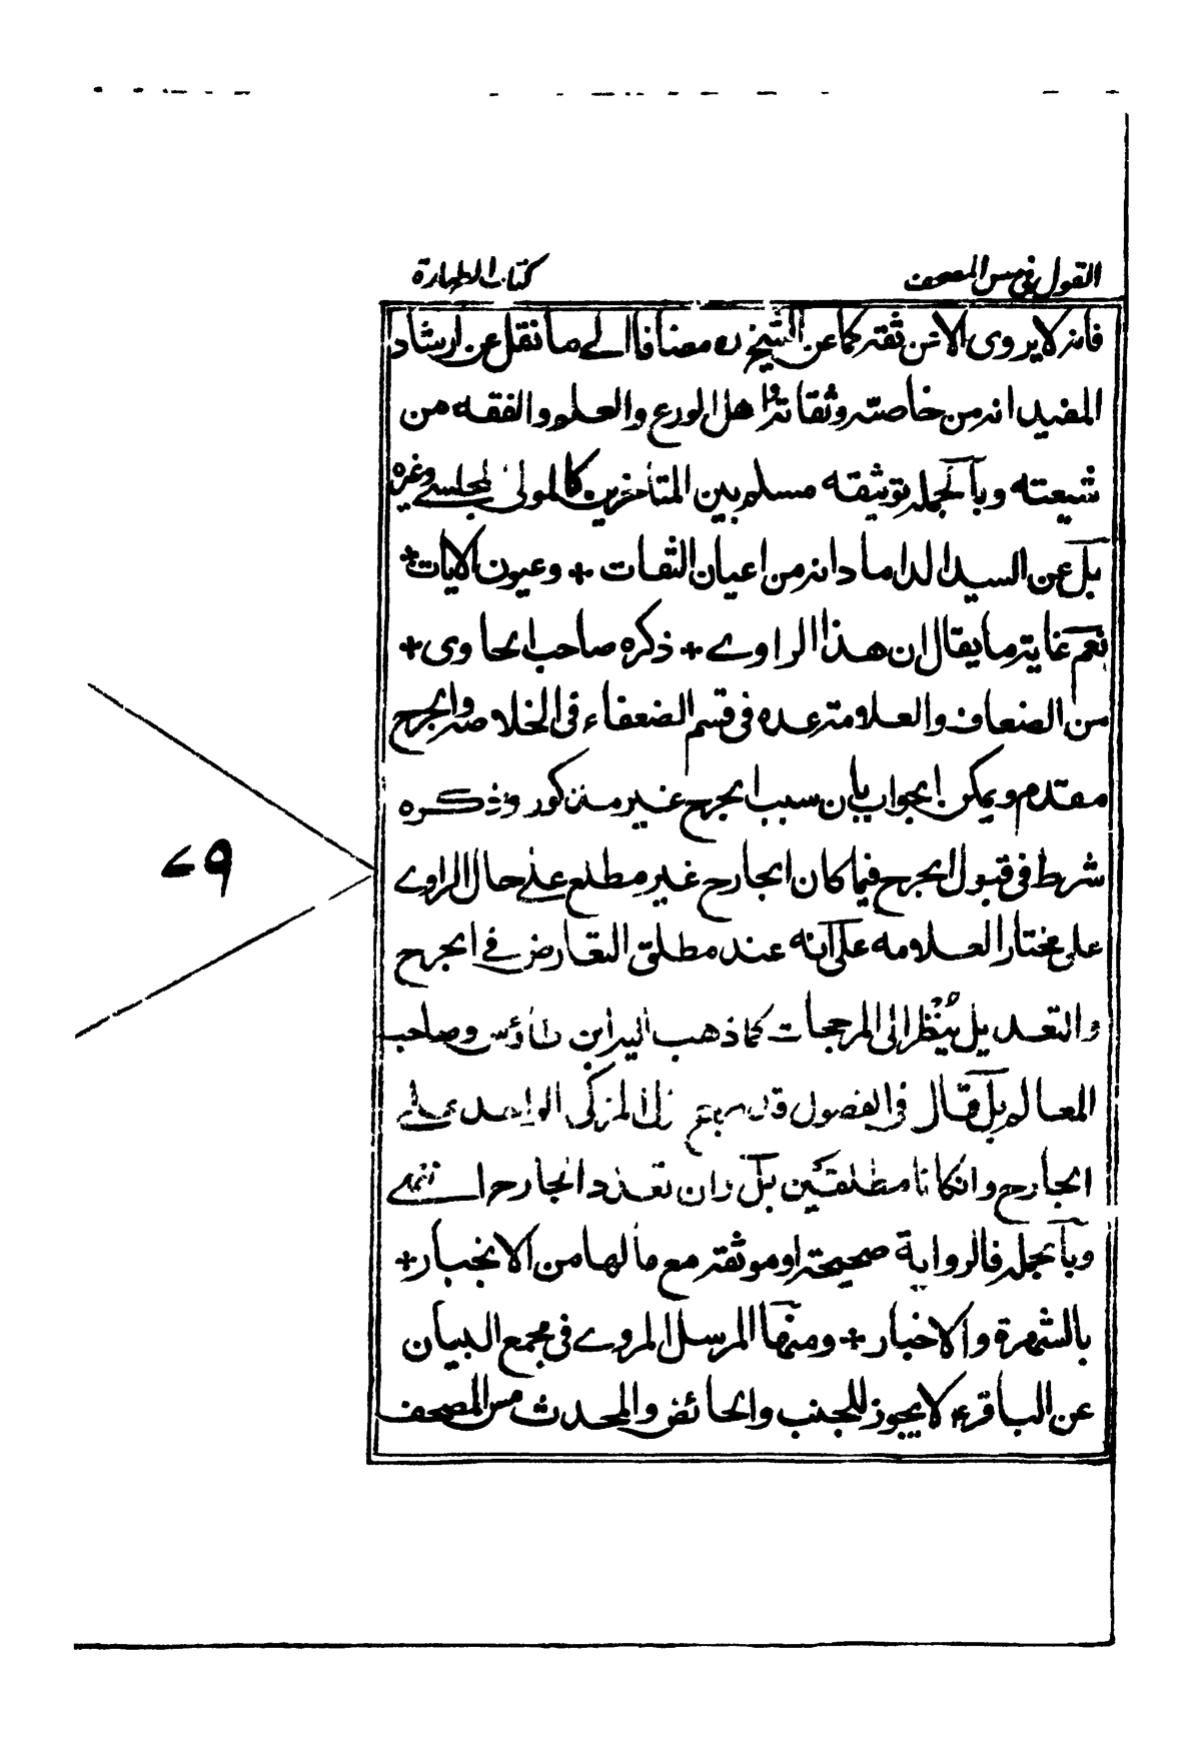 القول في مس المصحف
كتاب الطهارة
فانه لا يروى الا عن ثقة كما عن الشيخ ره مضافا الے ما نقل عن ارشاد
المفيد انه من خاصته وثقاته واهل الورع والعلم والفقه من
شيعته وبالجمله توثيقه مسلم بين المتأخرين كالمولى المجلسے وغيره
بل عن السيد الداماد انه من اعيان الثقات + وعيون الايات +
نعم غاية ما يقال ان هذا الراوے + ذكره صاحب الحاوى +
من الضعاف والعلامة عده فى قسم الضعفاء فى الخلاصه والجرح
مقدم ويمكن الجواب بان سبب الجرح غير مذكور وذكره
شرط فى قبول الجرح فيما كان الجارح غير مطلع علے حال الراوے
على مختار العلامه على انه عند مطلق التعارض فے الجرح
والتعديل يُنْظر الى المرجحات كما ذهب اليه ابن طاؤس وصاحب
المعالم بل قال فى الفصول قد يرجح المزكى الواحد علے
الجارح وان كانا مطلقين بل وان تعدد الجارح انتهے
وبالجمله فالرواية صحيحة او موثقة مع ما لها من الانجبار +
بالشهرة والاخبار + ومنها المرسل المروے فى مجمع البيان
عن الباقر ع لا يجوز للجنب والحائض والمحدث مس المصحف